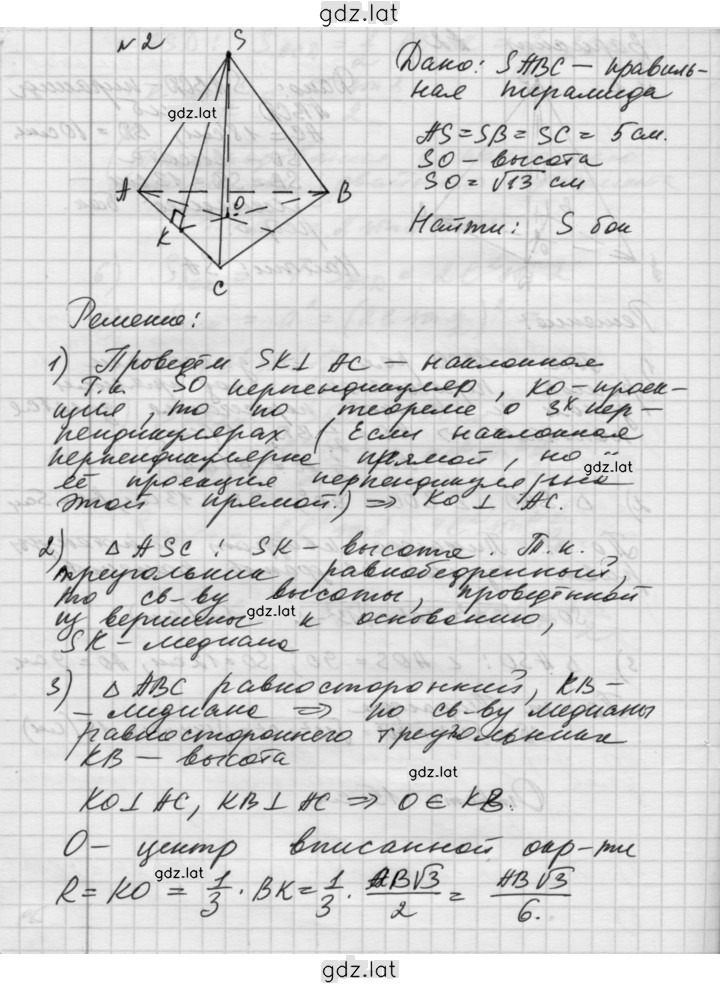 gdz.lat
№2
S
gdz.lat
A
O
B
K
C
Дано: SABC – правиль-
ная пирамида
AS = SB = SC = 5 см.
SO – высота
SO = √13 см
Найти: S бок
Решение:
1) Проведём SK ⊥ AC – наклонная
Т.к. SO перпендикуляр, KO – проек-
ция, то по теореме о 3х пер-
пендикулярах (Если наклонная
перпендикулярна прямой, но и
её проекция перпендикулярна
gdz.lat
этой прямой.) ⇒ KO ⊥ AC.
2) △ ASC : SK – высота. Т.к.
треугольник равнобедренный,
по св-ву высоты, проведённой
gdz.lat
из вершины к основанию,
SK – медиана
3) △ ABC равносторонний, KB –
– медиана ⇒ по св-ву медианы
равностороннего треугольника
KB – высота
gdz.lat
KO ⊥ AC, KB ⊥ AC ⇒ O ∈ KB.
O – центр вписанной окр-ти
gdz.lat
R = KO = 1/3 · BK = 1/3 · AB√3/2 = AB√3/6.
gdz.lat